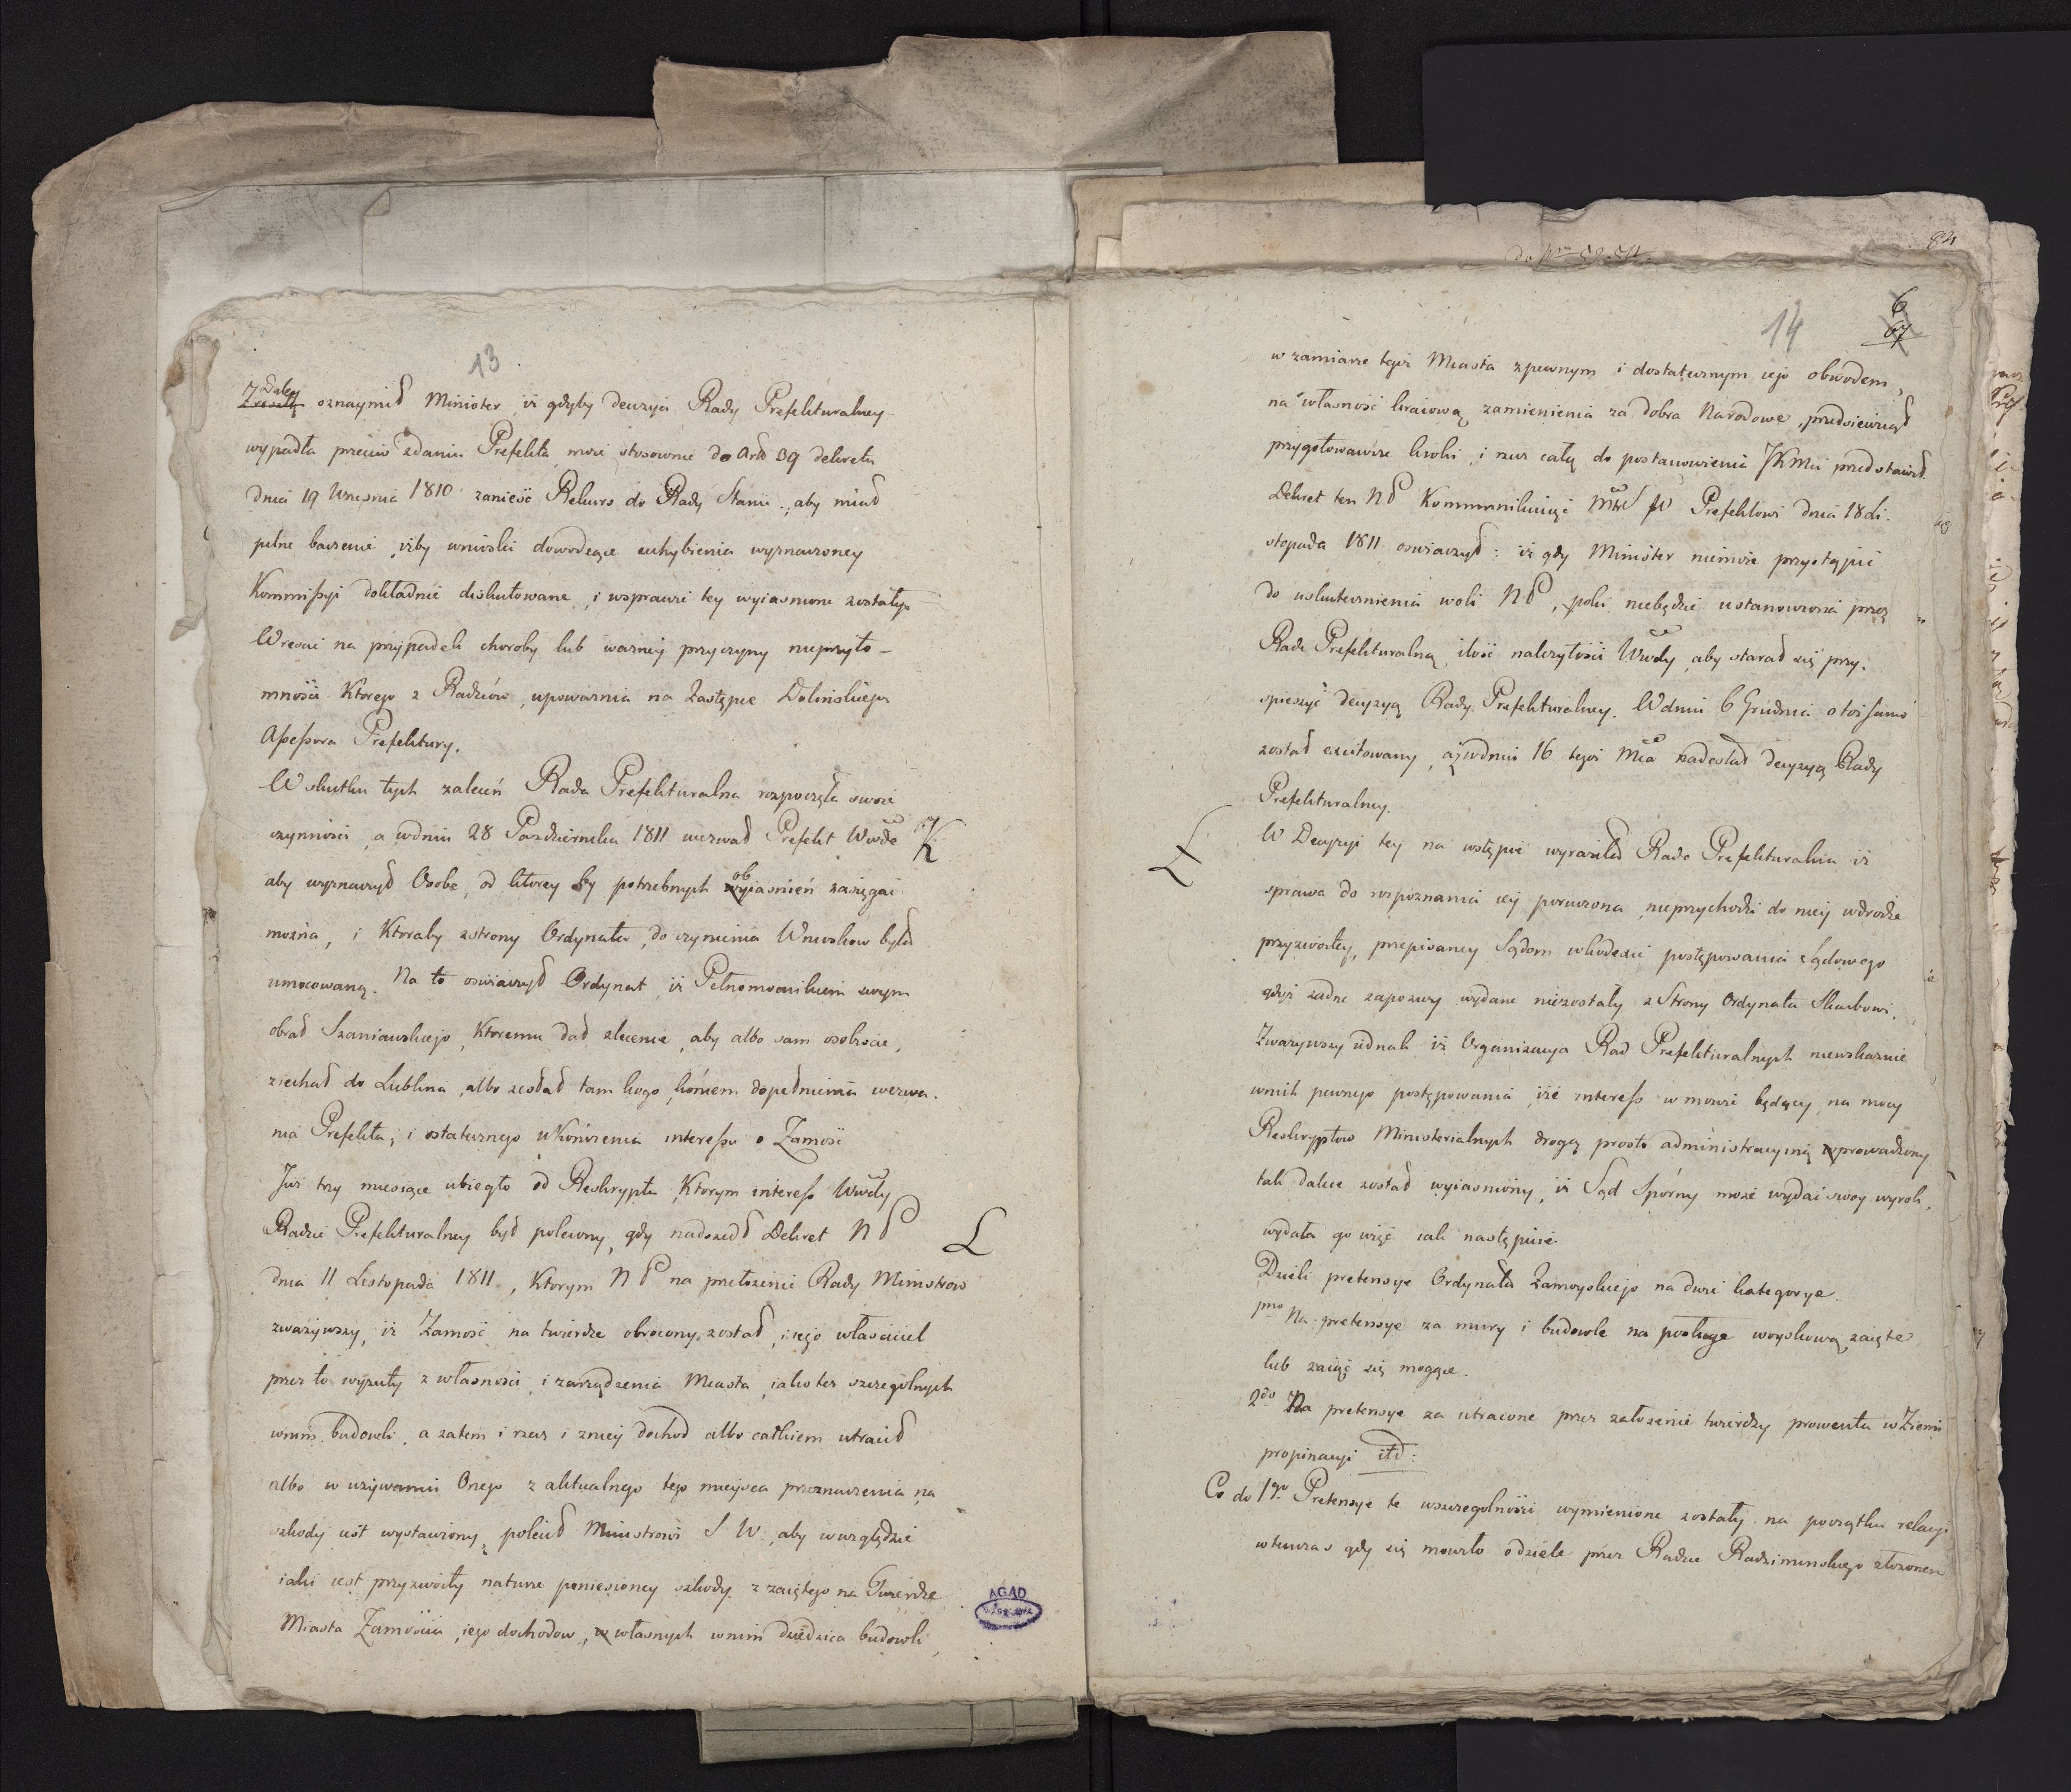 13
Daley
Zresztą oznaymił Minister iż gdyby decyzya Rady Prefekturalney
wypadła przeciw zdaniu Prefekta, może stosownie do Artt 39 dekretu
dnia 19 Września 1810 zanieść Rekurs do Rady Stanu, aby miał
pilne baczenie, iżby wnioski dowodzące uchybienia wyznaczoney
Kommissyi dokładnie diskutowane, i wsprawie tey wyiasnione zostały.
Wreście na przypadek choroby lub ważney przyczyny nieprzyto-
mności Którego z Radzców, upoważnia na Zastępcę Dolinskiego
Assessora Prefektury.
W skutku tych zaleceń Rada Prefekturalna rozpoczęła swoie
czynności, a wdniu 28 Pazdziernika 1811 wezwał Prefekt Wwdo K
aby wyznaczył Osobę, od ktorey by potrzebnych obiasnień zasięgać
można, i Ktoraby zstrony Ordynata, do czynienia Wniosków była
umocowaną. Na to oświadczył Ordynat, iż Pełnomocnikiem swym
obrał Szaniawskiego, Ktoremu dał zlecenie, aby albo sam osobiście,
ziechał do Lublina, albo zesłał tam kogo, końcem dopełnienia wezwa.
nia Prefekta; i ostatecznego ukończenia interessu o Zamość
Już trzy miesiące ubiegło od Reskryptu, Ktorym interess Wwdy
Radzie Prefekturalney był polecony, gdy nadszedł Dekret N P L
dnia 11 Listopada 1811, Ktorym N P na przełożenie Rady Ministrow
zważywszy, iż Zamość na twierdzę obrocony został, i iego właściciel
przez to wyzuty z własności, i zarządzenia Miasta, iako też szczegolnych
wnim budowli, a zatem i rzecz i zniey dochod albo całkiem utracił
albo w używaniu Onego z aktualnego tego mieysca przeznaczenia na
szkody iest wystawiony, polecił Ministrowi S W., aby wwzględzie
iaki iest przyzwoity naturze poniesioney szkody z zaiętego na Twierdzę
Miasta Zamościa, iego dochodow, własnych wnim dziedzica budowli,
AGAD
do
84
14
6
67
w zamiarze tegoż Miasta zpewnym i dostatecznym iego obwodem,
na własność kraiową zamienienia za dobra Narodowe, przedsiewziął
przygotowawcze kroki, i rzecz całą do postanowienia JKMci przedstawił.
Dekret ten N P Kommunikuiąc Prefektowi dnia 18 Li-
stopada 1811 oswiadczył: iż gdy Minister niemoże przystąpić
do uskutecznienia woli N P, poki niebędzie ustanowiona przez
Radę Prefekturalną ilość należytości Wwdy, aby starał się przy-
spieszyć decyzyą Rady Prefekturalney. Wdniu 6 Grudnia o toż samo
został excitowany, a wdniu 16 tegoż Mca nadesłał decyzyą Rady
Prefekturalney.
Ł W Decyzyi tey na wstępie wyraziła Rada Prefekturalna iż
sprawa do rozpoznania iey poruczona, nieprzychodzi do niey wdrodze
przyzwoitey, przepisaney Sądom wkodexie postępowania Sądowego
gdyż żadne zapozwy wydane niezostały z Strony Ordynata Skarbowi.
Zważywszy iednak iż Organizacya Rad Prefekturalnych niewskazuie
wnich pewnego postępowania, iże interess w mowie będący, na mocy
Reskryptow Ministerialnych drogą prosto administracyiną prowadzony
tak dalece został wyiasniony, iż Sąd Spórny może wydać swoy wyrok,
wydała go więc iak następuie.
Dzieli pretensye Ordynata Zamoyskiego na dwie kategorye.
pmo Na pretensye za mury i budowle na posługę woyskową zaięte
lub zaiąć się mogące.
2do Na pretensye za utracone przez założenie twierdzy prowenta w Ziemi
propinacyi itd:
Co do 1go Pretensye te wszczegolności wymienione zostały na początku relacyi
wtenczas gdy się mowiło o dziele przez Radzcę Radziminskiego złożonem